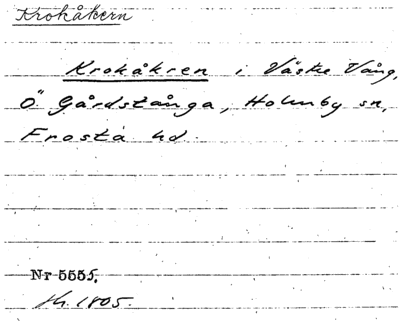 Krokåkern
Krokåkren i Västre Vång,
Ö Gårdstånga, Holmby sn,
Frosta hd.
Nr 5551.
1805.